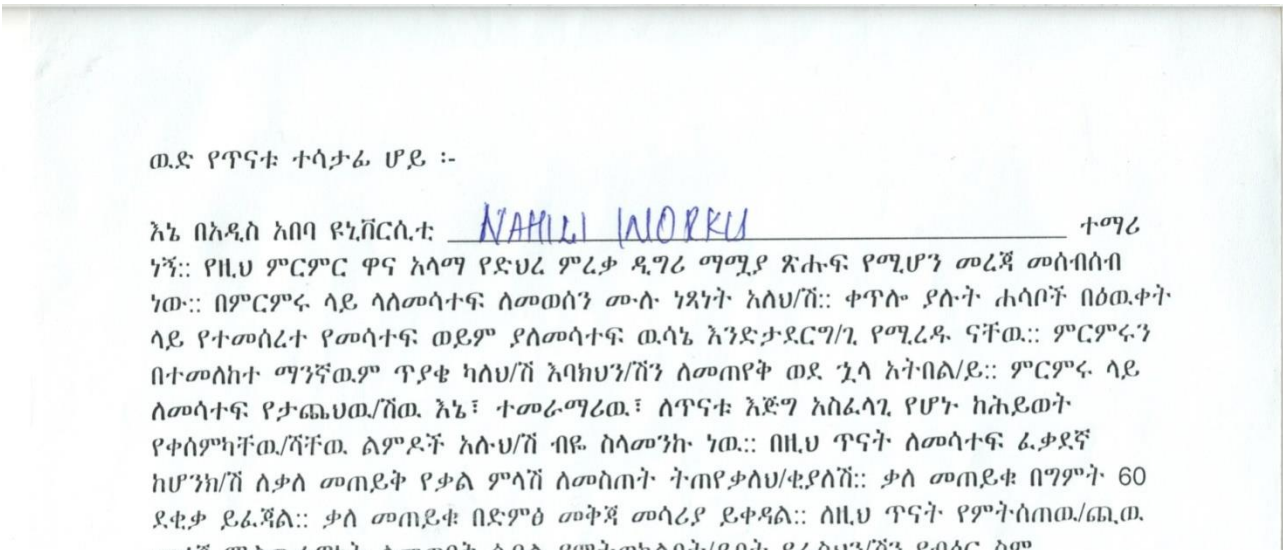 ዉድ የጥናቱ ተሳታፊ ሆይ :-
እኔ በአዲስ አበባ ዩኒቨርሲቲ NAHILI WORKU ተማሪ
ነኝ:: የዚህ ምርምር ዋና አላማ የድህረ ምረቃ ዲግሪ ማሟያ ጽሑፍ የሚሆን መረጃ መሰብሰብ
ነው:: በምርምሩ ላይ ላለመሳተፍ ለመወሰን ሙሉ ነጻነት አለህ/ሽ:: ቀጥሎ ያሉት ሐሳቦች በዕዉቀት
ላይ የተመሰረተ የመሳተፍ ወይም ያለመሳተፍ ዉሳኔ እንድታደርግ/ጊ የሚረዱ ናቸዉ:: ምርምሩን
በተመለከተ ማንኛዉም ጥያቄ ካለህ/ሽ እባክህን/ሽን ለመጠየቅ ወደ ኋላ አትበል/ይ:: ምርምሩ ላይ
ለመሳተፍ የታጨህዉ/ሽዉ እኔ፣ ተመራማሪዉ፣ ለጥናቱ እጅግ አስፈላጊ የሆኑ ከሕይወት
የቀሰምካቸዉ/ሻቸዉ ልምዶች አሉህ/ሽ ብዬ ስላመንኩ ነዉ:: በዚህ ጥናት ለመሳተፍ ፈቃደኛ
ከሆንክ/ሽ ለቃለ መጠይቅ የቃል ምላሽ ለመስጠት ትጠየቃለህ/ቂያለሽ:: ቃለ መጠይቁ በግምት 60
ደቂቃ ይፈጃል:: ቃለ መጠይቁ በድምፅ መቅጃ መሳሪያ ይቀዳል:: ለዚህ ጥናት የምትሰጠዉ/ጪዉ